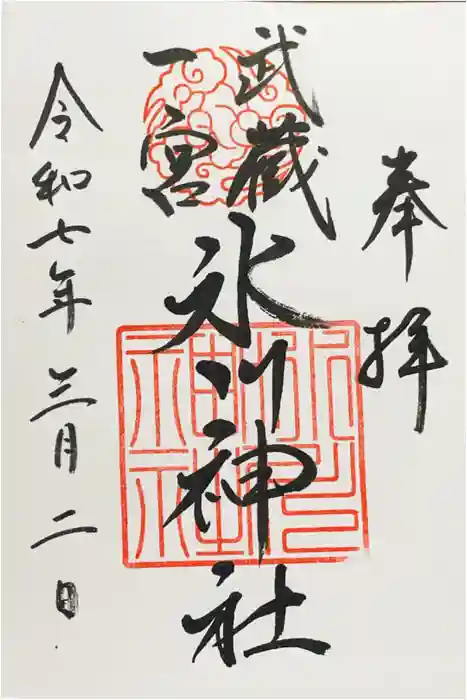 奉拝
武蔵
一宮
氷川神社
令和七年三月二日
氷川
神社